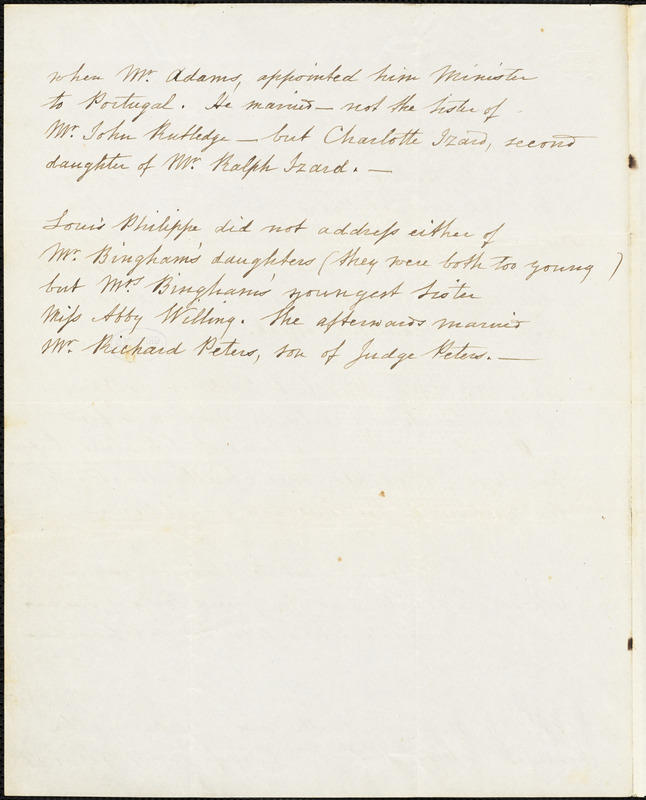 when Mr. Adams, appointed him Minister
to Portugal. He married – not the sister of
Mr. John Rutledge – but Charlotte Izard, second
daughter of Mr. Ralph Izard. –
Louis Philippe did not address either of
Mr. Bingham's daughters (they were both too young)
but Mrs Bingham's youngest sister
Miss Abby Willing. She afterwards married
Mr. Richard Peters, son of Judge Peters. –